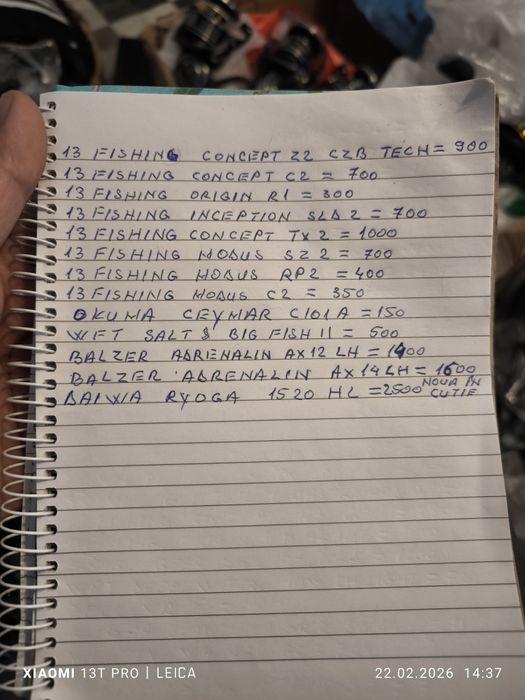 13 FISHING CONCEPT Z2 CZB TECH = 900
13 FISHING CONCEPT C2 = 700
13 FISHING ORIGIN R1 = 300
13 FISHING INCEPTION SLD 2 = 700
13 FISHING CONCEPT TX 2 = 1000
13 FISHING MODUS SZ 2 = 700
13 FISHING MODUS RP2 = 400
13 FISHING MODUS C2 = 350
OKUMA CEYMAR C101A = 150
WFT SALT & BIG FISH 11 = 500
BALZER ADRENALIN AX12 LH = 1400
BALZER ADRENALIN AX14LH = 1600
DAIWA RYOGA 1520 HL = 2500 NOUA IN CUTIE
XIAOMI 13T PRO | LEICA
22.02.2026 14:37